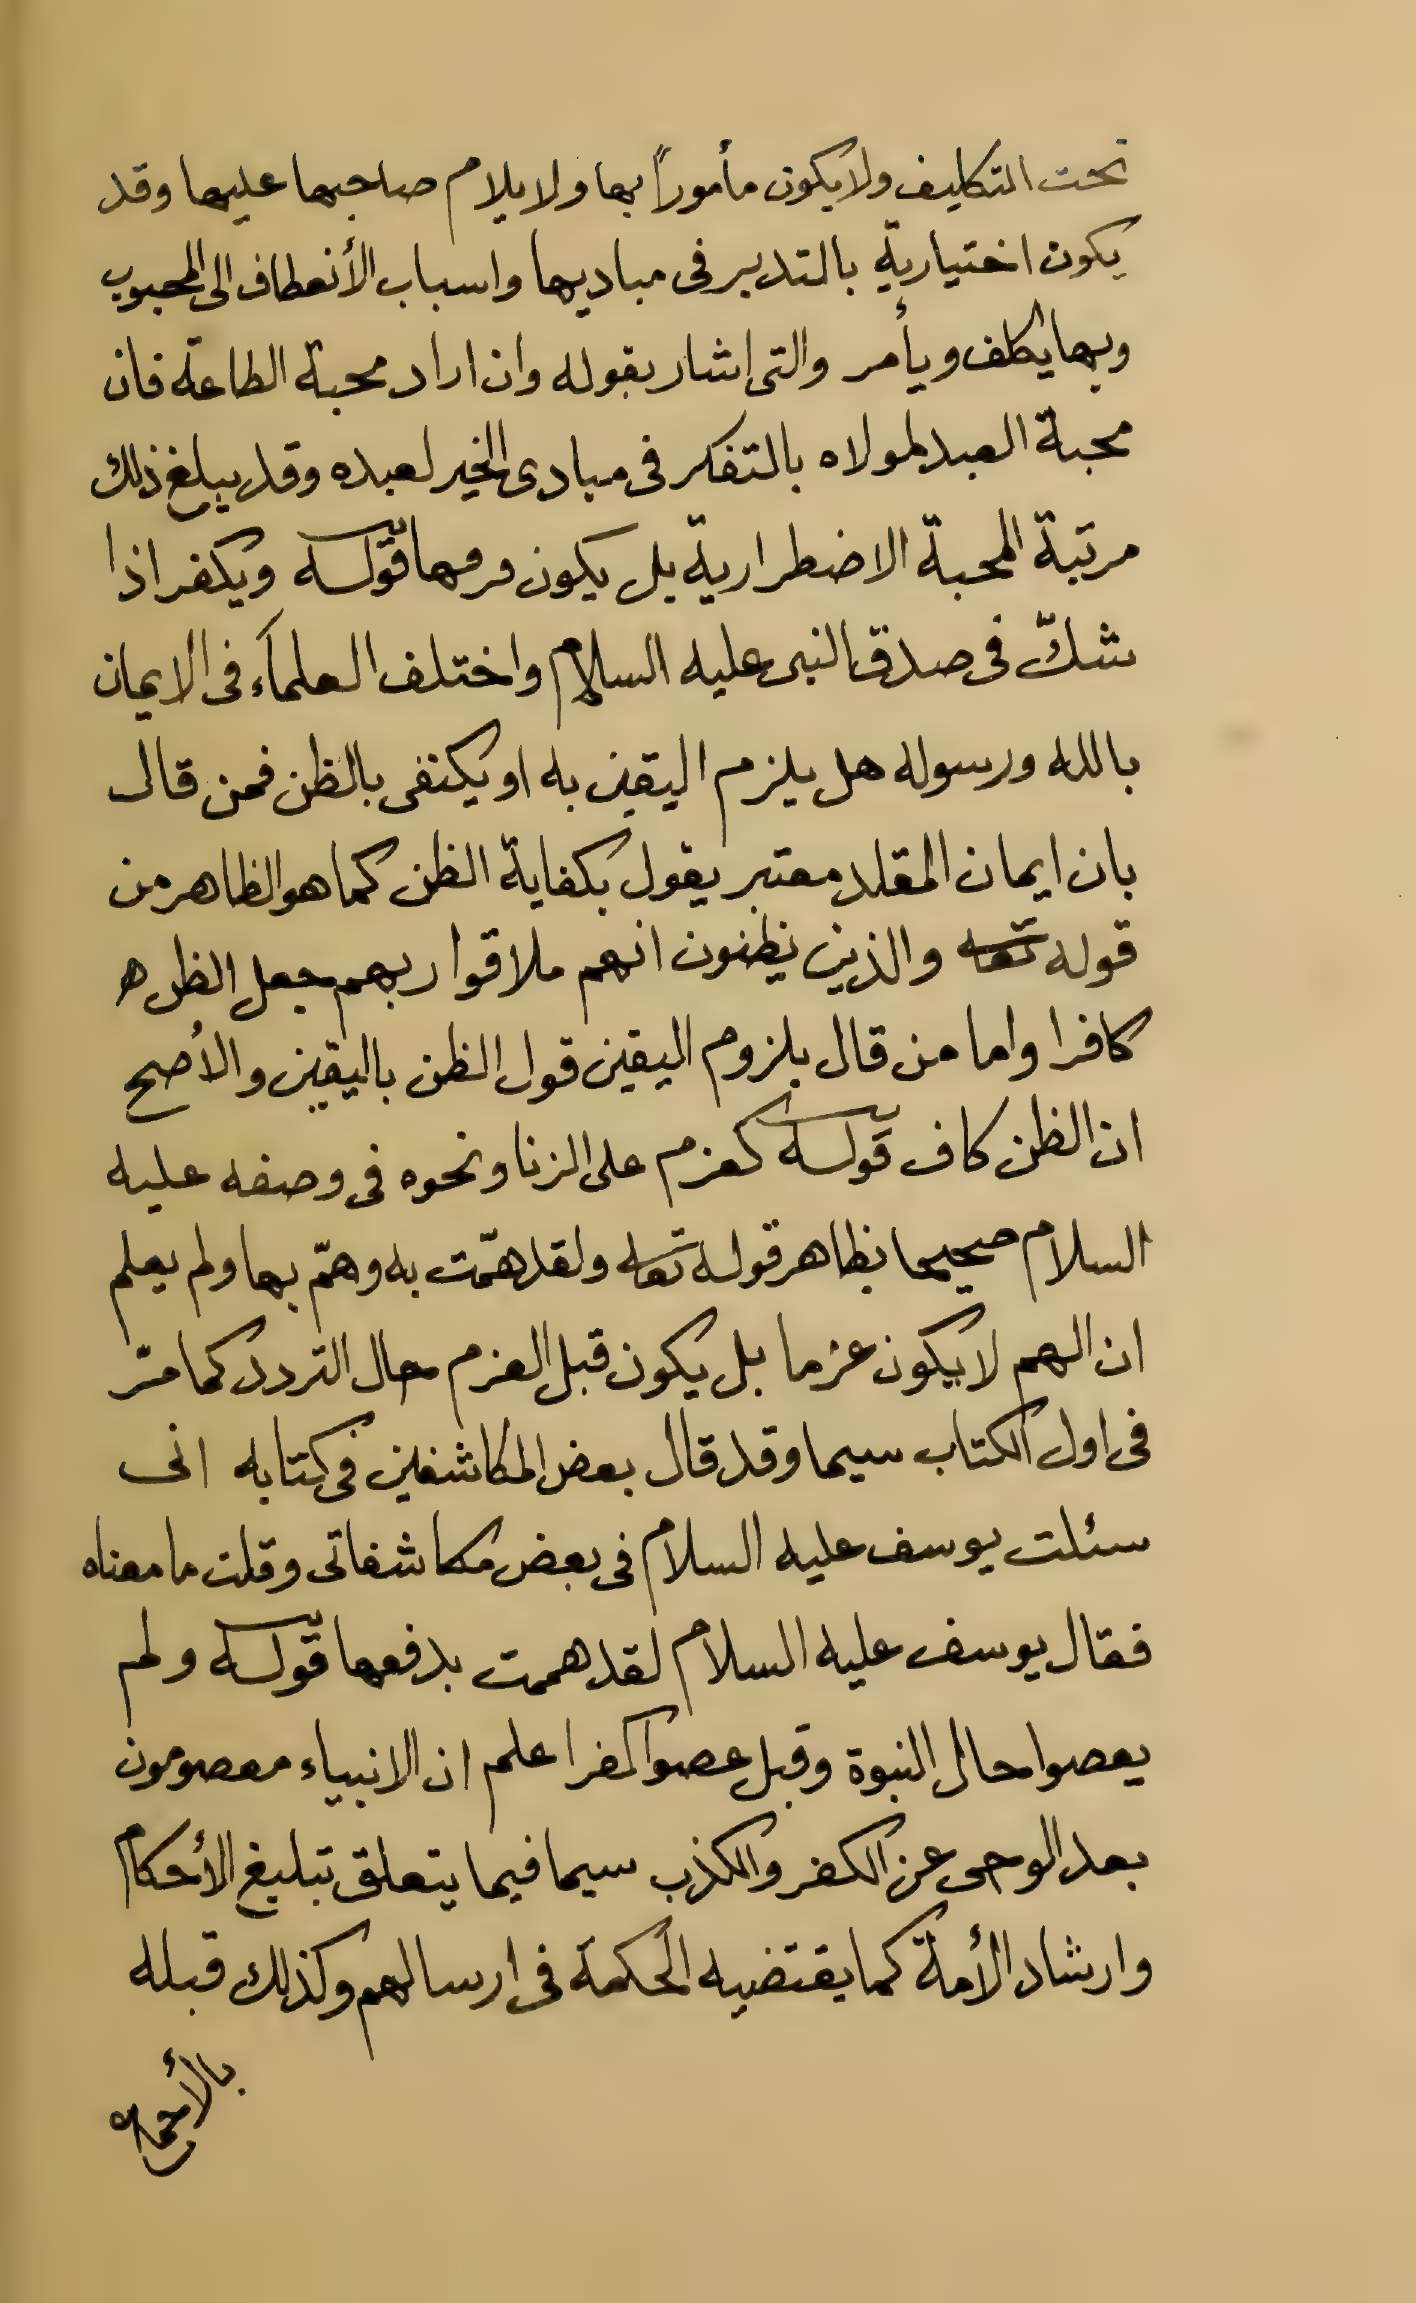 تحت التكليف ولا يكون مأموراً بها ولا يلام صاحبها عليها وقد
يكون اختيارية بالتدبر في مباديها واسباب الأنعطاف الى المحبوب
وبها يكلف ويأمر والتى اشار بقوله وان اراد محبة الطاعة فان
محبة العبد لمولاه بالتفكر فى مبادى الخير لعبده وقد يبلغ ذلك
مرتبة المحبة الاضطرارية بل يكون قوله ويكفر اذا
شكّ فى صدق النبى عليه السلام واختلف العلماء فى الايمان
بالله ورسوله هل يلزم اليقين به او يكتفى بالظن فمن قال
بان ايمان المقلد معتبر يقول بكفاية الظن كما هو الظاهر من
قوله تعا والذين يظنون انهم ملاقوا ربهم جعل الظن
كافرا واما من قال بلزوم اليقين قول الظن باليقين والأصح
ان الظن كاف قوله كعزم على الزنا ونحوه فى وصفه عليه
السلام صحيحا بظاهر قوله تعا ولقد همّت به وهمّ بها ولم يعلم
ان الهم لا يكون عزما بل يكون قبل العزم حال التردد كما مرّ
فى اول الكتاب سيما وقد قال بعض المكاشفين فى كتابه انى
سئلت يوسف عليه السلام فى بعض مكاشفاتى وقلت ما معناه
فقال يوسف عليه السلام لقد هممت بدفعها قوله ولم
يعصوا حال النبوة وقبل عصوا كفرا علم ان الانبياء معصومون
بعد الوحى عن الكفر والكذب سيما فيما يتعلق تبليغ الأحكام
وارشاد الأمة كما يقتضيه الحكمة فى ارسالهم وكذلك قبله
بالأجماع